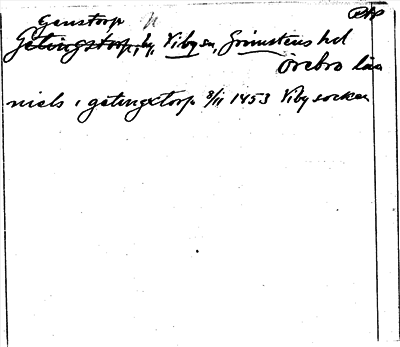 Genstorp
Getingstorp, by, Viby sn, Grimstens hd
Örebro län
niels i getingxtorp 8/11 1453 Viby socken